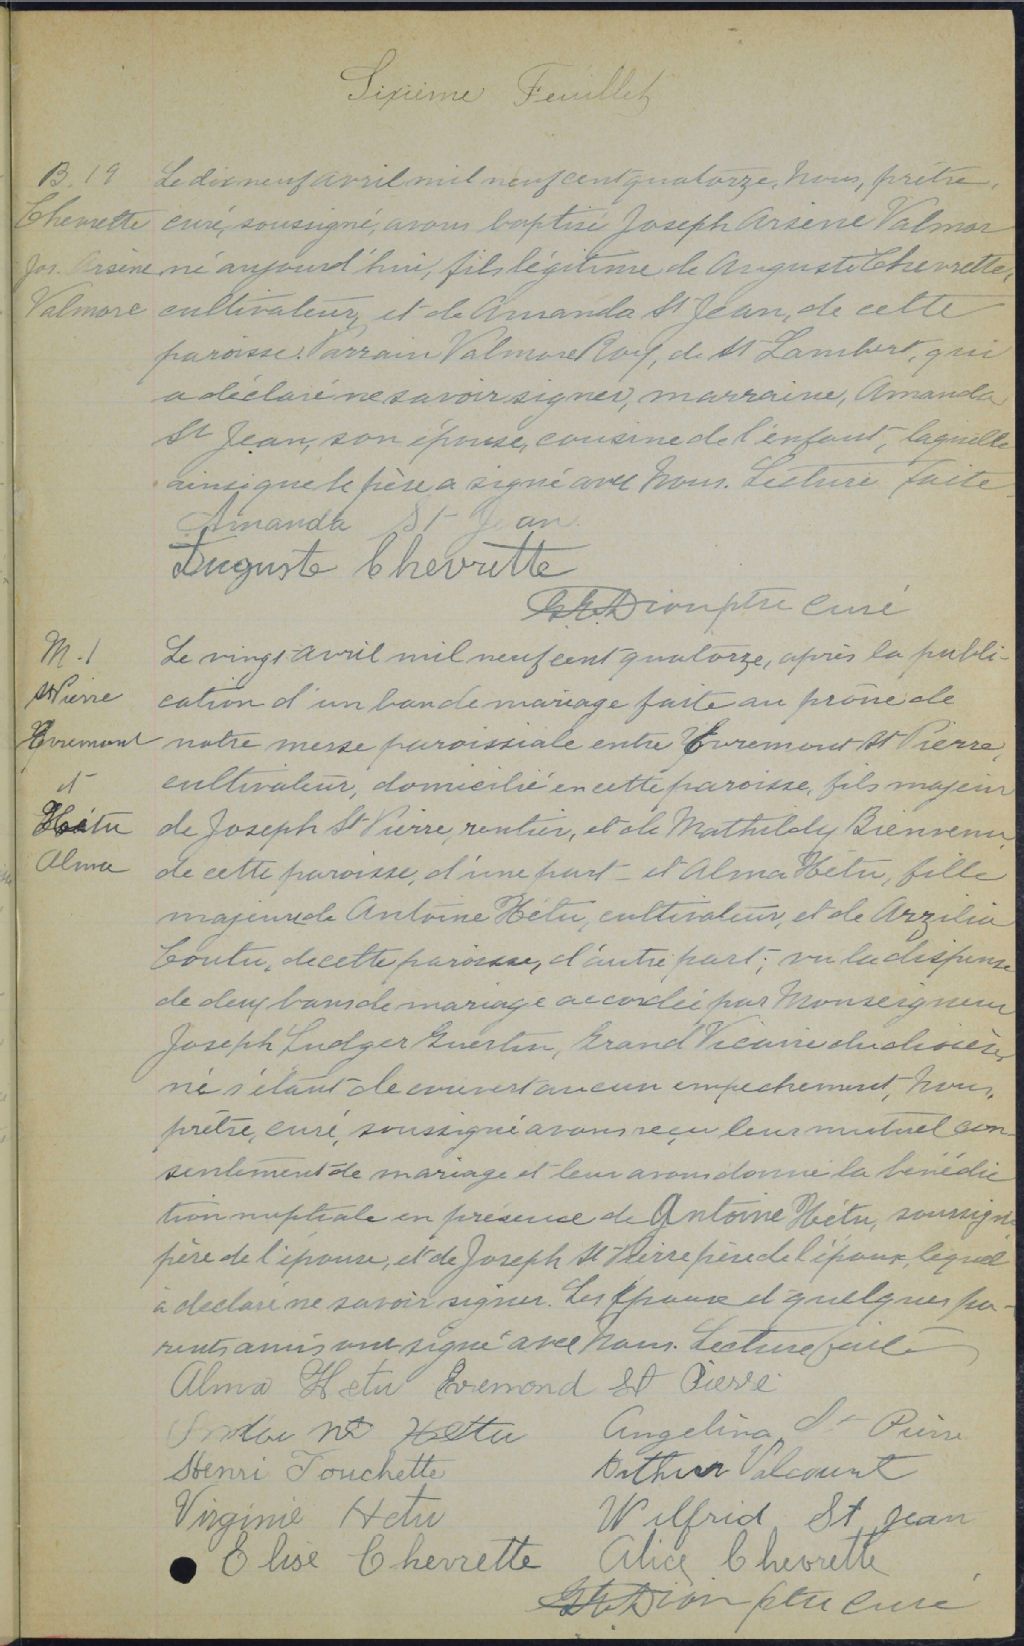 Sixième Feuillet
B. 19
Chevrette
Jos. Arsène
Valmore
Le dix neuf avril mil neuf cent quatorze, Nous, prêtre,
curé, soussigné, avons baptisé Joseph Arsène Valmor
né aujourd'hui, fils légitime de Auguste Chevrette,
cultivateur, et de Amanda St Jean, de cette
paroisse. Parrain Valmore Roy, de St Lambert, qui
a déclaré ne savoir signer, marraine, Amanda
St Jean, son épouse, cousine de l'enfant, laquelle
ainsi que le père a signé avec Nous. Lecture faite
Amanda St Jean.
Auguste Chevrette
Dion ptre curé
M. 1
St Pierre
Evremont
et
Hétu
Alma
Le vingt avril mil neuf cent quatorze, après la publi-
cation d'un ban de mariage faite au prône de
notre messe paroissiale entre Evremont St Pierre,
cultivateur, domicilié en cette paroisse, fils majeur
de Joseph St Pierre, rentier, et de Mathildy Bienvenu,
de cette paroisse, d'une part - et Alma Hétu, fille
majeure de Antoine Hétu, cultivateur, et de Arzilia
Coutu, de cette paroisse, d'autre part; vu la dispense
de deux bans de mariage accordée par Monseigneur
Joseph Ludger Guertin, Grand Vicaire du diocèse,
né s'étant decouvert aucun empechement, Nous,
prêtre, curé, soussigné avons reçu leur mutuel con-
sentement de mariage et leur avons donné la bénédic
tion nuptiale en présence de Antoine Hétu, soussigné
père de l'épouse, et de Joseph St Pierre père de l'époux, lequel
à declaré ne savoir signer. Les Epoux et quelques pa-
rents amis ont signé avec Nous. Lecture faite
Alma Hetu Evremond St Pierre
Hetu Angelina St Pierre
Henri Touchette Arthur Valcourt
Virginie Hetu Wilfrid St Jean
Elise Chevrette Alice Chevrette
Dion ptre curé